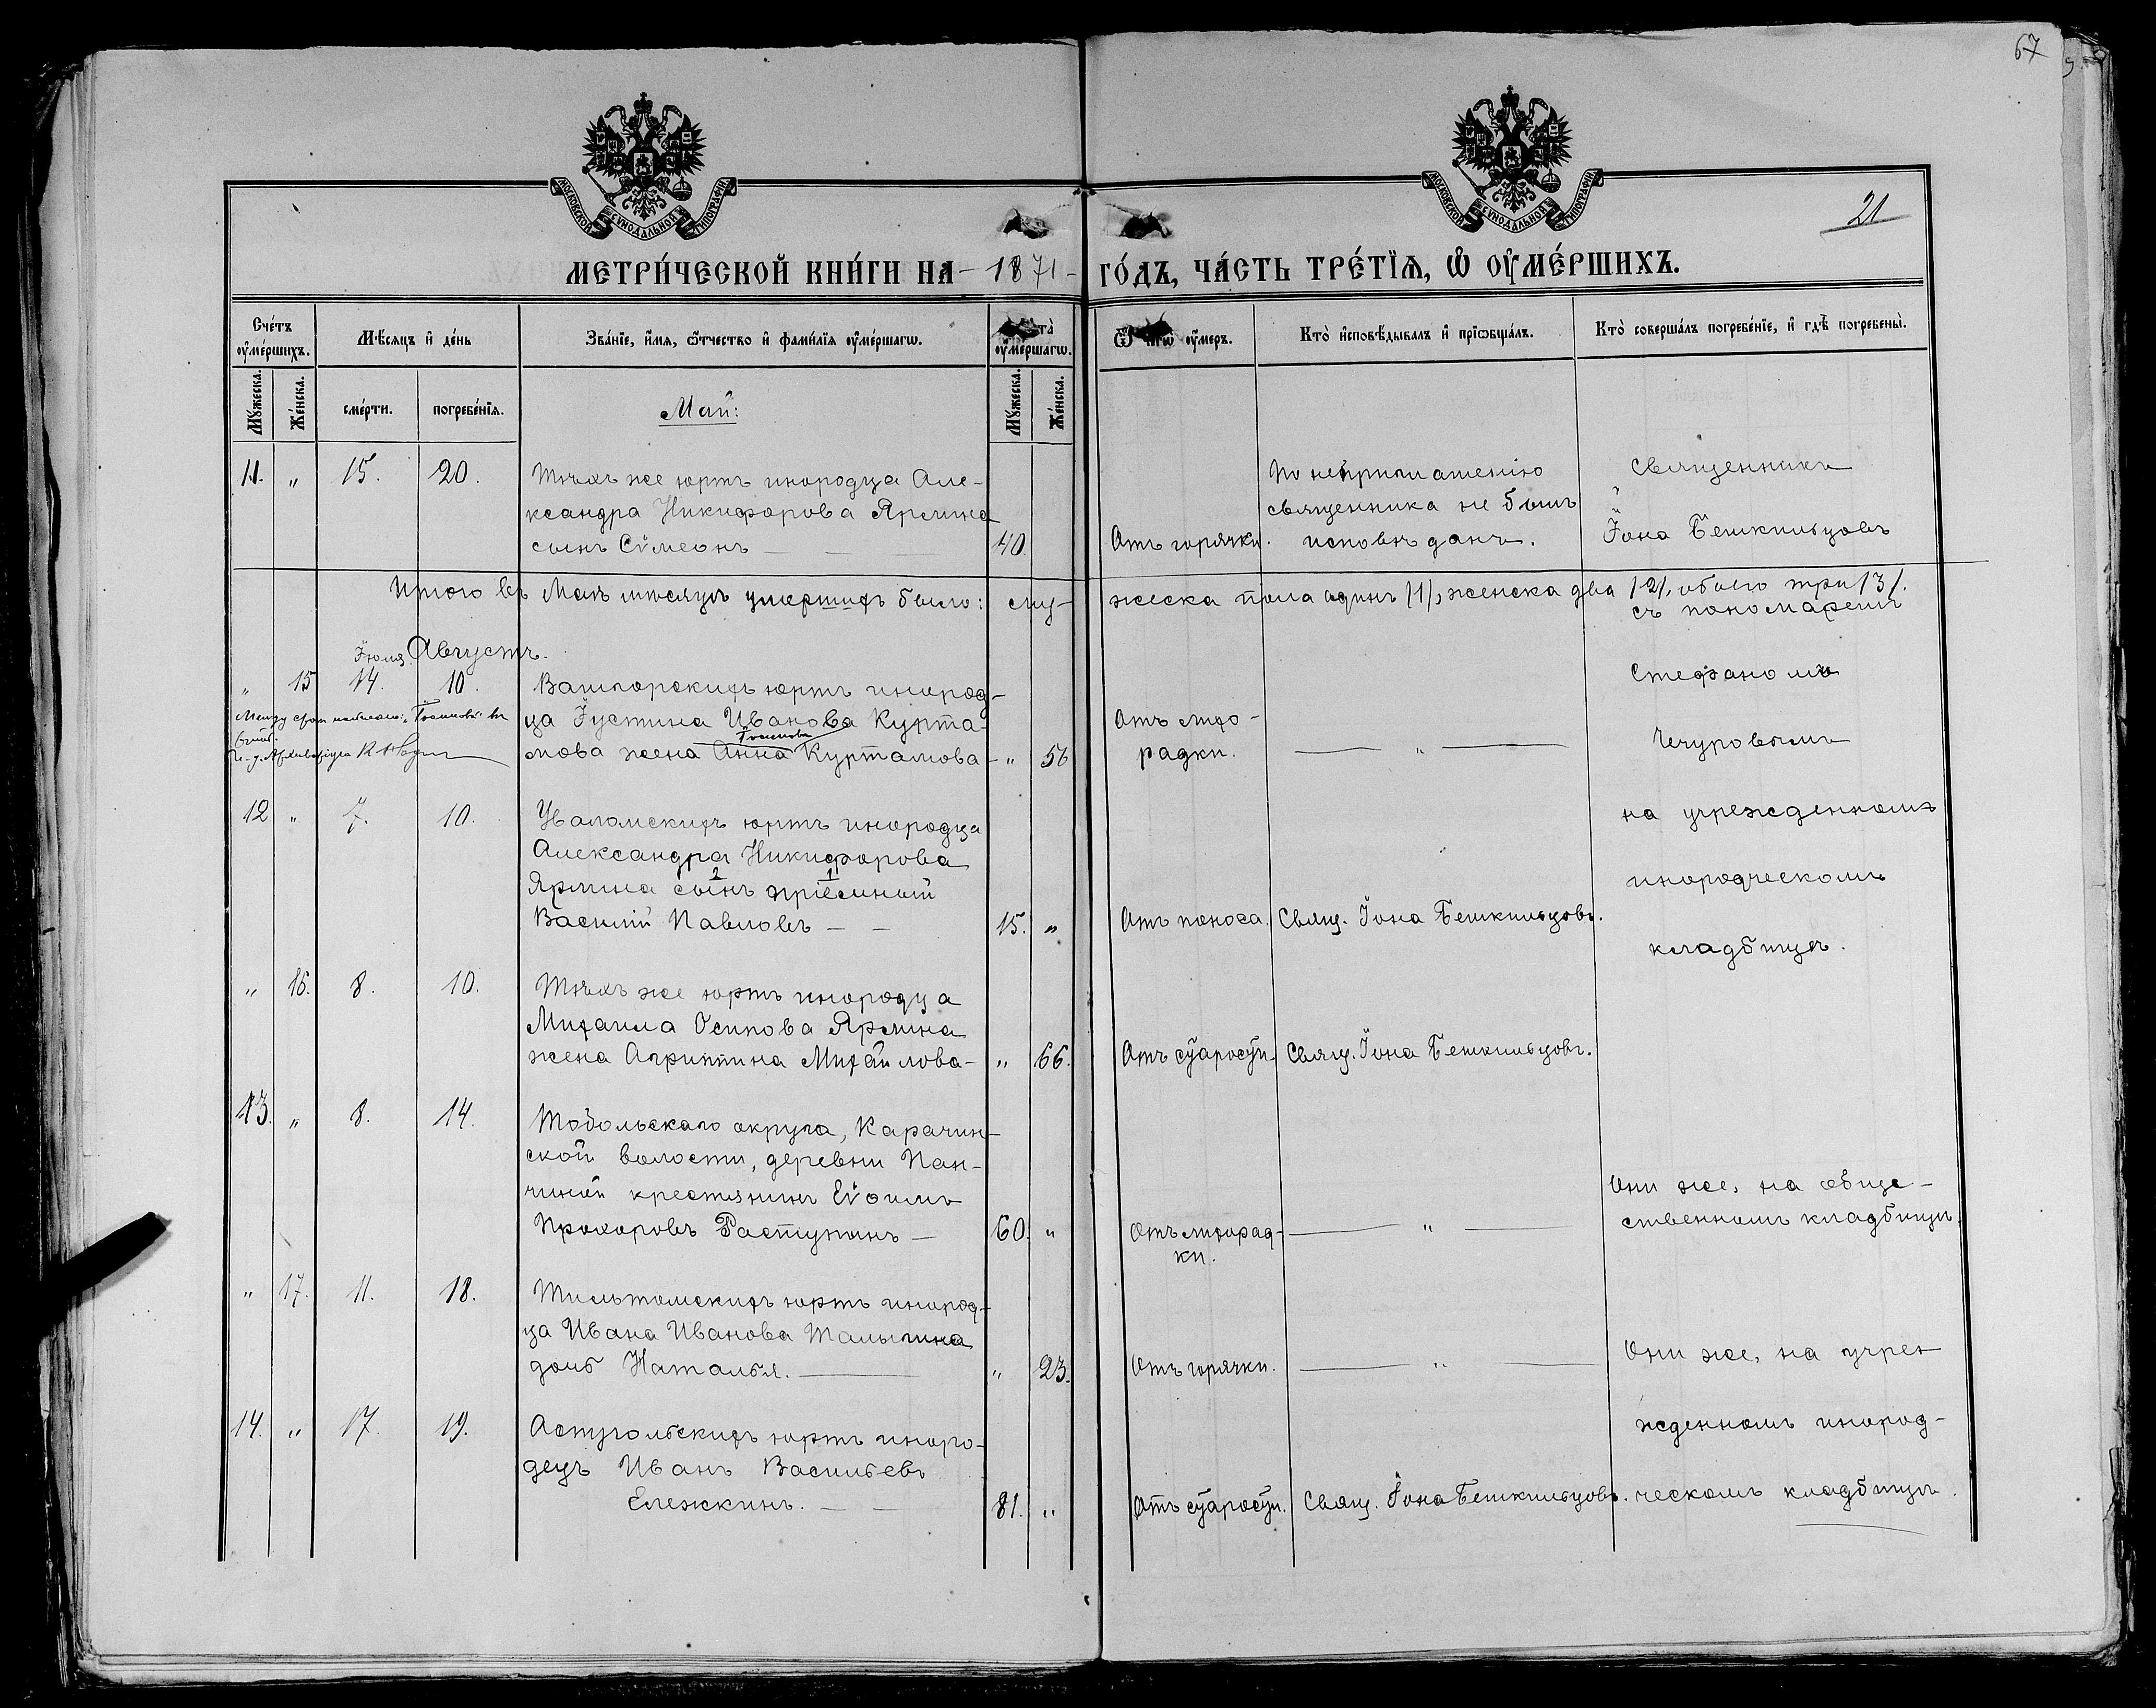 67
МОСКОВСКОЙ СѴНОДАЛЬНОЙ ТИПОГРАФІИ
МОСКОВСКОЙ СѴНОДАЛЬНОЙ ТИПОГРАФІИ
21
МЕТРИ́ЧЕСКОЙ КНИ́ГИ НА -1871- ГО́ДЪ, ЧА́СТЬ ТРЕ́ТЇѦ, Ѡ ОУ҆МЕ́РШИХЪ.
Сче́тъ оу҆ме́ршихъ.
Мѣ́сяцъ и҆ де́нь
Зва́нїе, и҆́мя, ѻ҆́тчество и҆ фами́лїя оу҆ме́ршагѡ.
та̀ оу҆ме́ршагѡ.
Ѿ оу҆́меръ.
Кто̀ и҆сповѣ́дывалъ и҆ прїѡбща́лъ.
Кто̀ соверша́лъ погребе́нїе, и҆ гдѣ̀ погребены̀.
Мꙋ́жеска.
Же́нска.
сме́рти.
погребе́нїя.
Май:
Мꙋ́жеска.
Же́нска.
11. " 15. 20. Тѣхъ же юртъ инородца Але-
ксандра Никифорова Ярмина
сынъ Сѵмеонъ — 40. Отъ горячки.
По неприглашенію
священника не былъ
исповѣданъ.
Священникъ
Іона Бешкильцовъ
Итого въ Маѣ мѣсяцѣ умершихъ было: му-жеска пола одинъ /1/, женска два /2/, обоего три /3/.
съ пономаремъ
Іюля Августъ.
" 15 14. 10. Вашпорскихъ юртъ инород-
ца Іустина Иванова Курта-
мова жена Анна Куртамова — " 56
Отъ лихо-
радки. — " —
Стефаномъ
Чечуровымъ
12 " 7. 10. Уваломскихъ юртъ инородца
Александра Никифорова
2 1
Ярмина сынъ пріемный
Василій Павловъ — — 15. " Отъ поноса. Свящ. Іона Бешкильцовъ.
на учрежденномъ
инородческомъ
кладбищѣ.
" 16. 8. 10. Тѣхъ же юртъ инородца
Михаила Осипова Ярмина
жена Агриппина Михайлова — " 66. Отъ старости. Свящ. Іона Бешкильцовъ.
13. " 8. 14. Тобольскаго округа, Карачин-
ской волости, деревни Пан-
чиной крестянинъ Евѳимъ
Прохоровъ Растунинъ — 60. " Отъ лихорад-
ки. — " —
Они же, на обще-
ственномъ кладбищѣ.
" 17. 11. 18. Тильтомскихъ юртъ инород-
ца Ивана Иванова Талыгина
дочь Наталья. — " 23. Отъ горячки. — " —
Они же, на учре-
жденномъ инород-
ческомъ кладбищѣ.
14. " 17. 19. Остуголбскихъ юртъ иноро-
децъ Иванъ Васильевъ
Ележкинъ. — — 81. " Отъ старости. Свящ. Іона Бешкильцовъ.